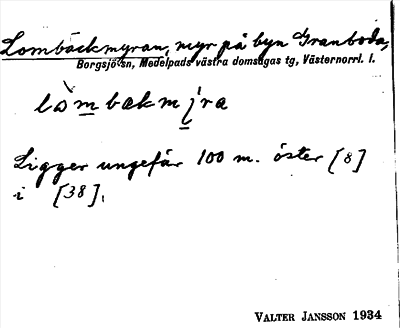 Lombäckmyran, myr på byn Granboda,
Borgsjö sn, Medelpads västra domsagas tg, Västernorrl. l.
Ligger ungefär 100 m. öster [8]
i [38].
VALTER JANSSON 1934